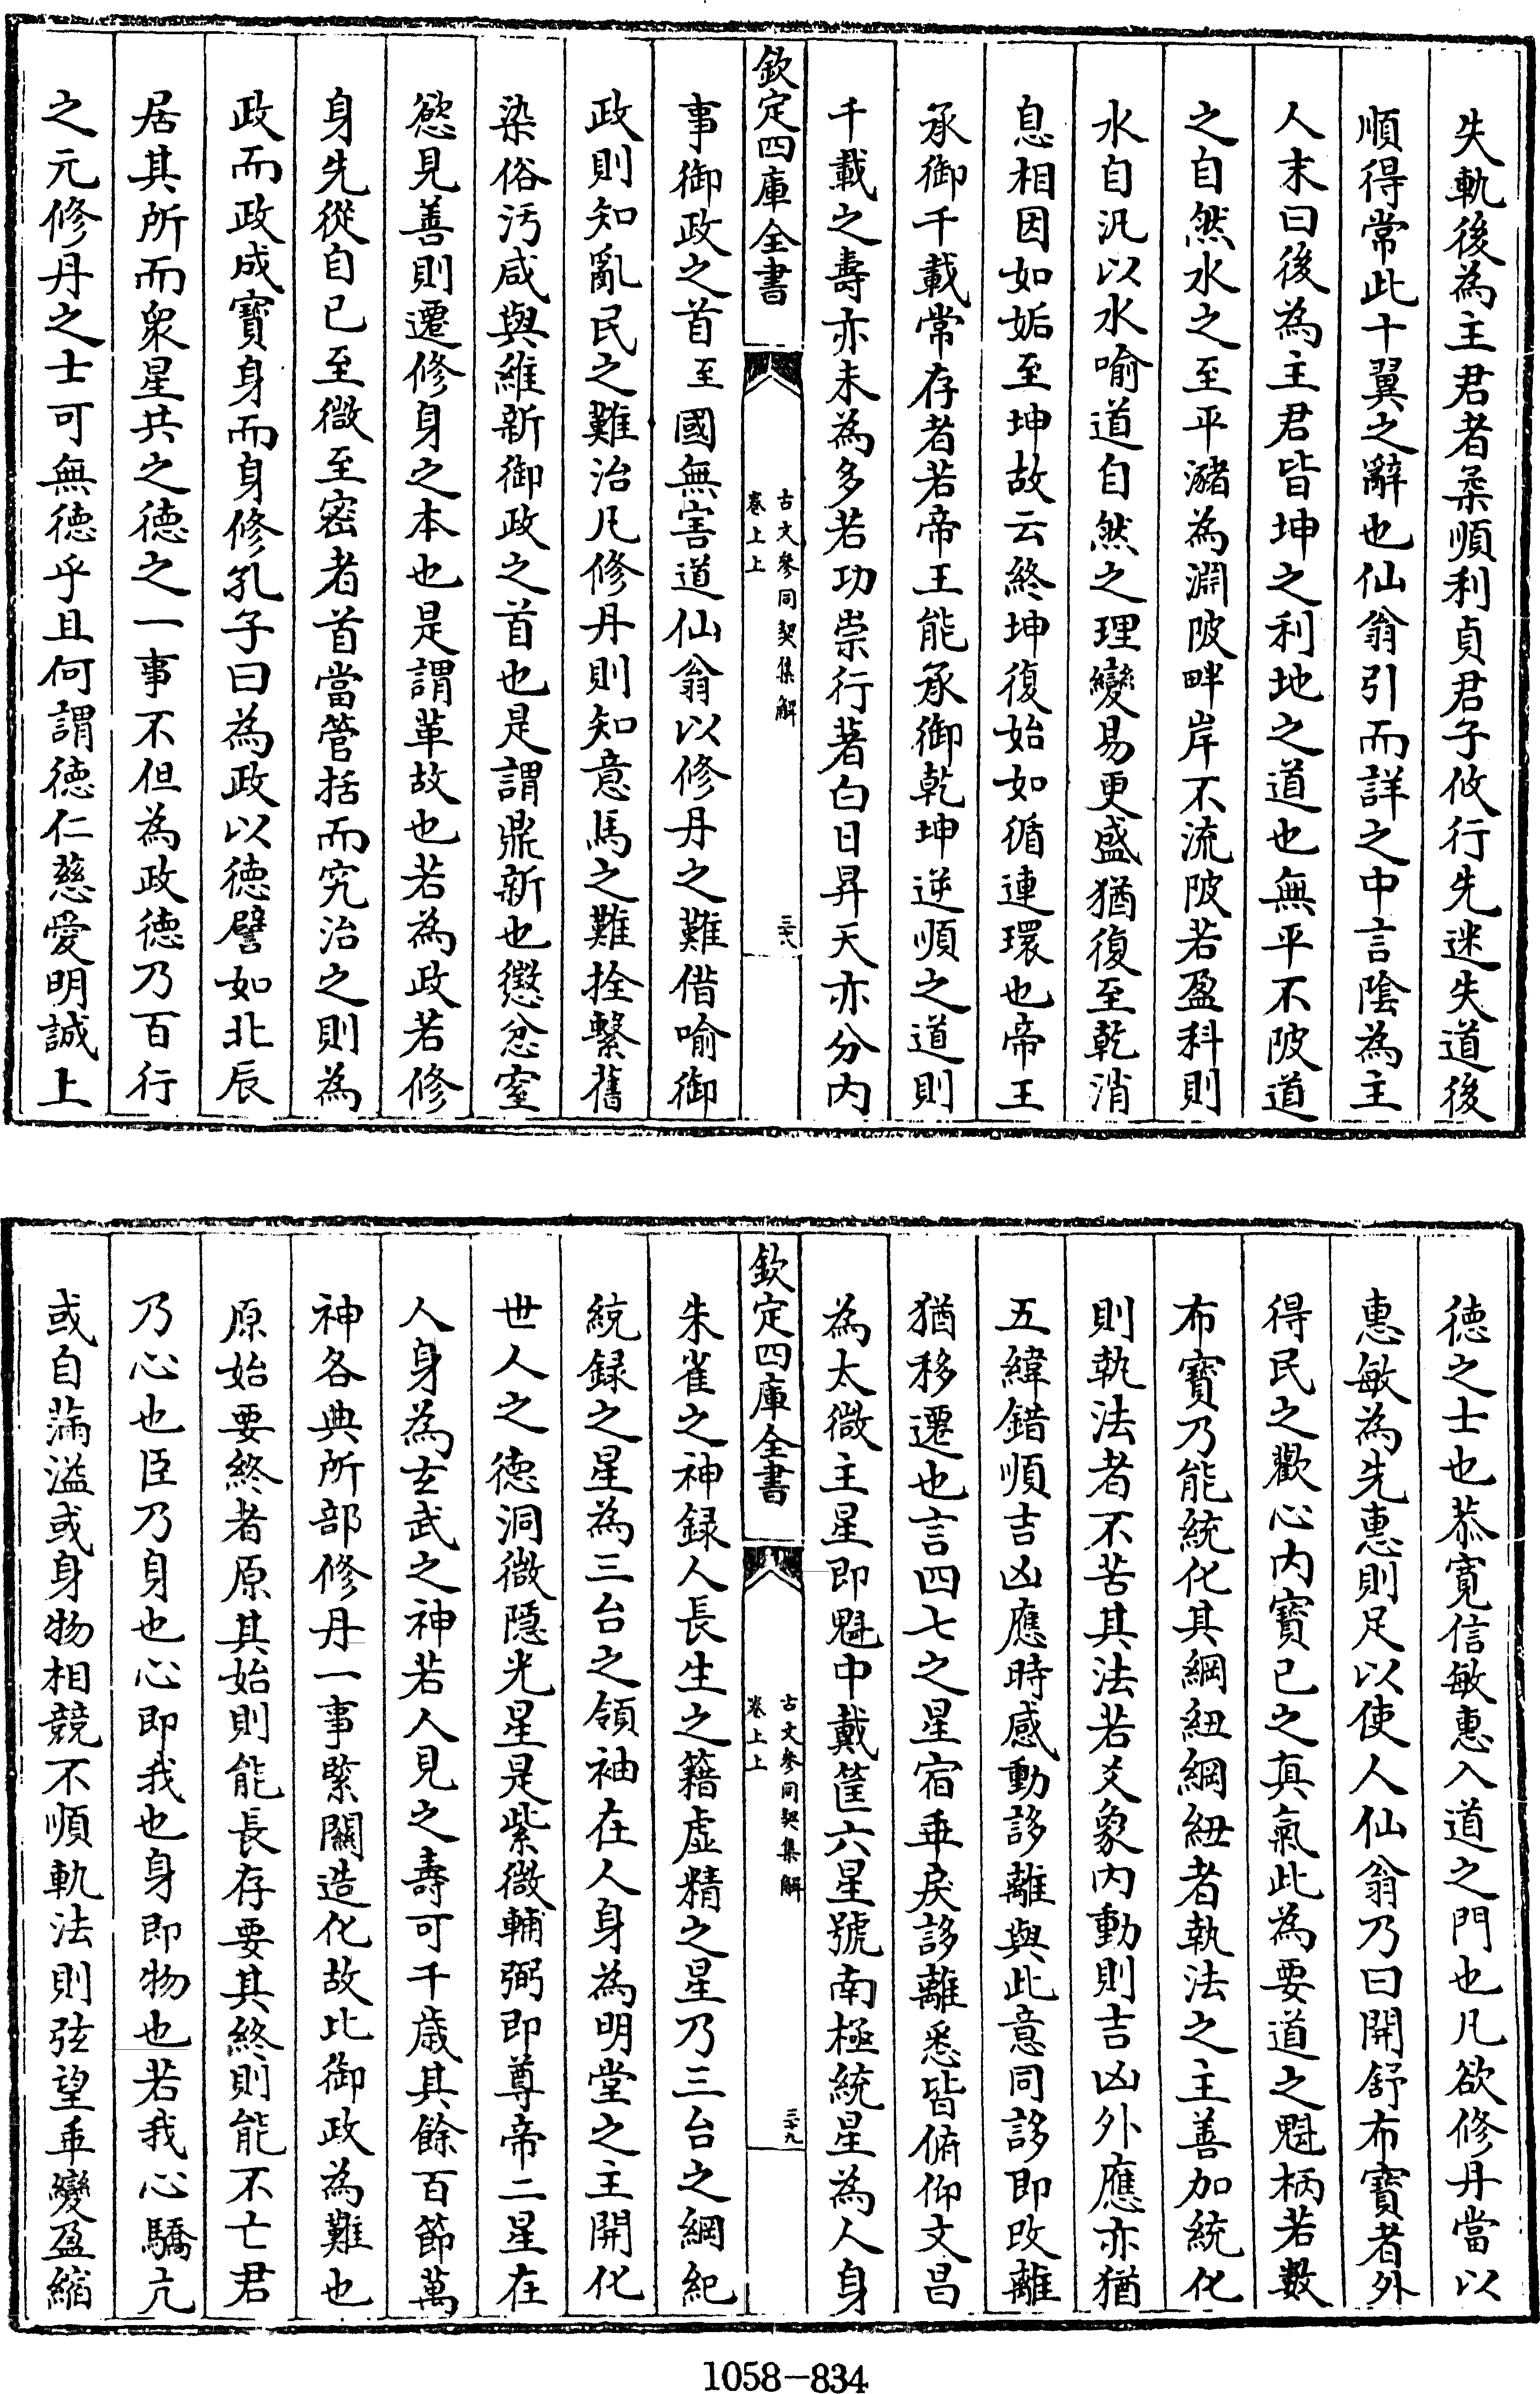 失軌後為主君者柔順利貞君子攸行先迷失道後
順得常此十翼之辭也仙翁引而詳之中言陰為主
人末曰後為主君皆坤之利地之道也無平不陂道
之自然水之至平瀦為淵陂畔岸不流陂若盈科則
水自汎以水喻道自然之理變易更盛猶復至乾消
息相因如姤至坤故云終坤復始如循連環也帝王
承御千載常存者若帝王能承御乾坤逆順之道則
千載之壽亦未為多若功崇行著白日昇天亦分內
欽定四庫全書
古文參同契集解
卷上上
三十八
事御政之首至國無害道仙翁以修丹之難借喻御
政則知亂民之難治凡修丹則知意馬之難拴繫舊
染俗汚咸與維新御政之首也是謂鼎新也懲忿窒
慾見善則遷修身之本也是謂革故也若為政若修
身先從自已至微至密者首當管括而究治之則為
政而政成寳身而身修孔子曰為政以德譬如北辰
居其所而衆星共之德之一事不但為政德乃百行
之元修丹之士可無德乎且何謂德仁慈愛明誠上
德之士也恭寛信敏惠入道之門也凡欲修丹當以
惠敏為先惠則足以使人仙翁乃曰開舒布寳者外
得民之歡心内寳已之真氣此為要道之魁柄若數
布寳乃能統化其綱紐綱紐者執法之主善加統化
則執法者不苦其法若爻象内動則吉凶外應亦猶
五緯錯順吉凶應時感動誃離與此意同誃即改離
猶移遷也言四七之星宿乖戾誃離悉皆俯仰文昌
為太微主星即魁中戴筐六星號南極統星為人身
欽定四庫全書
古文參同契集解
卷上上
三十九
朱雀之神録人長生之籍虚精之星乃三台之綱紀
統録之星為三台之領袖在人身為明堂之主開化
世人之德洞微隱光星是紫微輔弼即尊帝二星在
人身為玄武之神若人見之壽可千歲其餘百節萬
神各典所部修丹一事緊關造化故比御政為難也
原始要終者原其始則能長存要其終則能不亡君
乃心也臣乃身也心即我也身即物也若我心驕亢
或自滿溢或身物相競不順軌法則弦望乖變盈縮
1058-834